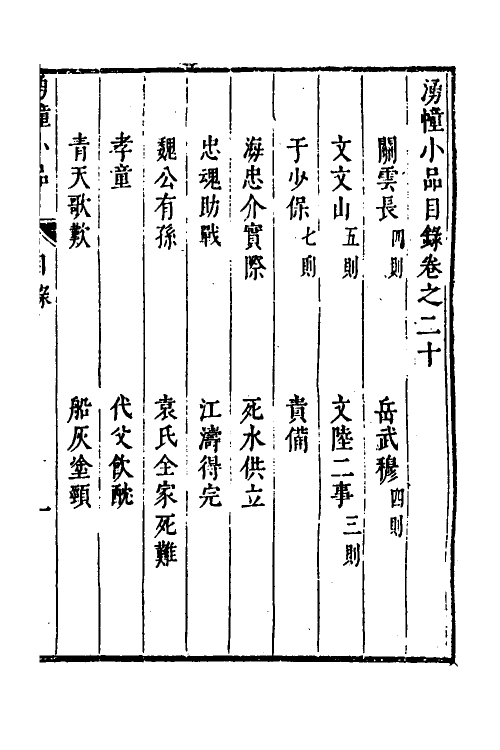 湧幢小品目錄卷之二十
關雲長四則 岳武穆四則
文文山五則 文陸二事三則
于少保七則 責備
海忠介實際 死水供立
忠魂助戰 江濤得完
魏公有孫 袁氏全家死難
孝童 代父飲酖
青天歌歎 船灰塗頸
湧幢小品 目錄 一